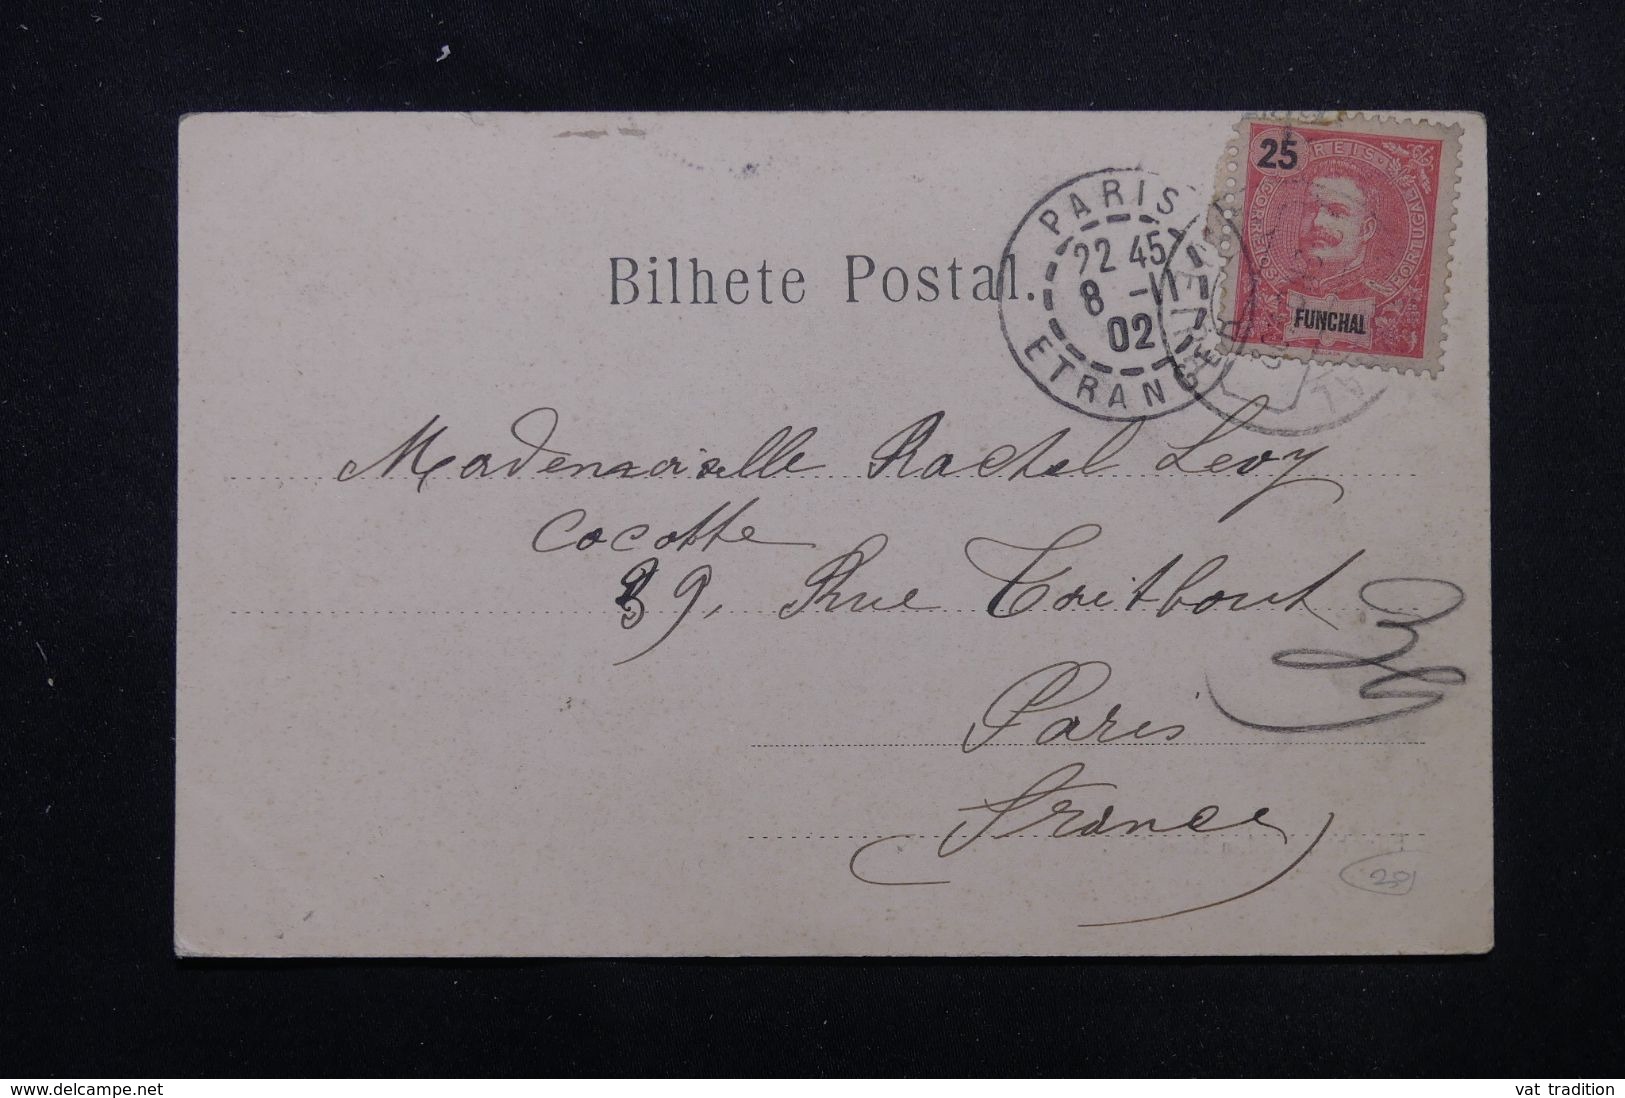 25
REIS
CORREIOS
PORTUGAL
FUNCHAL
PARIS
22 45
8 -11
02
ETRANGER
Bilhete Postal.
Mademoiselle Rachel Levy
Cocotte
39, Rue Taitbout
Paris
France
28
www.delcampe.net
vat tradition